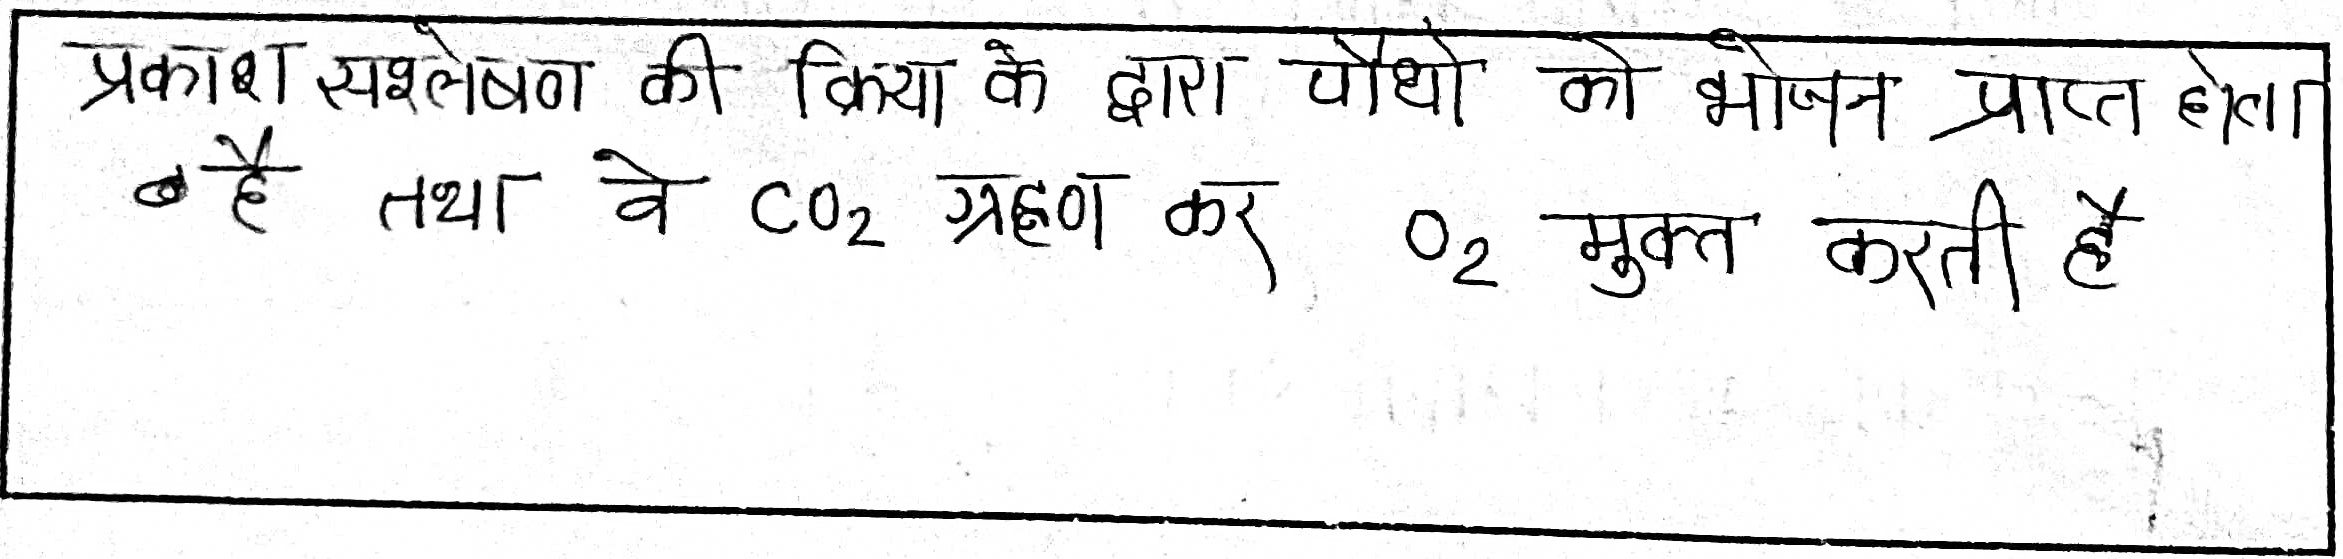 प्रकाश स्यश्लेषण की क्रिया के द्वारा पौधो को भोजन प्राप्त होता
है तथा वे CO₂ ग्रहण कर O₂ मुक्त करती है